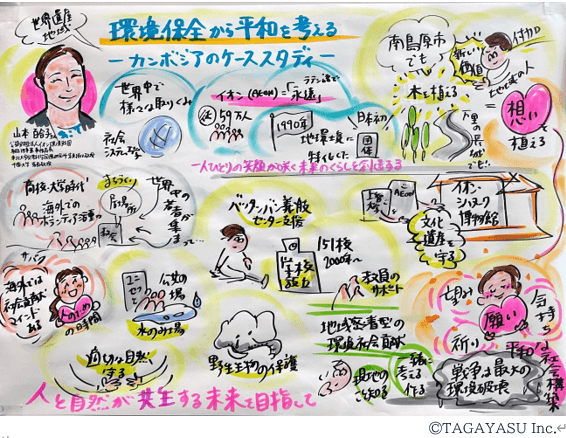 世界遺産
地域
環境保全から平和を考える
ーカンボジアのケーススタディー
世界中で
様々な取りくみ
イオン(AEON)=「永遠」
ラテン語で
南島原市
でも
新しい
価値
付加
地球の人
木を植える
想い
を
植える
1990年
地球環境に
特化した
日本初
団体
一人ひとりの笑顔が咲く未来のくらしを創造する
高校・大学時代
海外での
ボランティア活動
世界中の
若者
が
集まって…
バッタンバン義肢
センター支援
学校
151校
2000年〜
教員の
サポート
イオン・
シハヌーク
博物館
文化
遺産を
守る
海外では
社会貢献
マインド
ある
人のため
の時間
ユニセフ
公共の
場
水のみ場
適切な自然
守る
野生生物の保護
地域密着型の
環境社会貢献
現地の
一緒に
考える
作る
望み
願い
祈り
気持ち
平和な社会構築
戦争は最大の
環境破壊
人と自然が共生する未来を目指して
©TAGAYASU Inc.